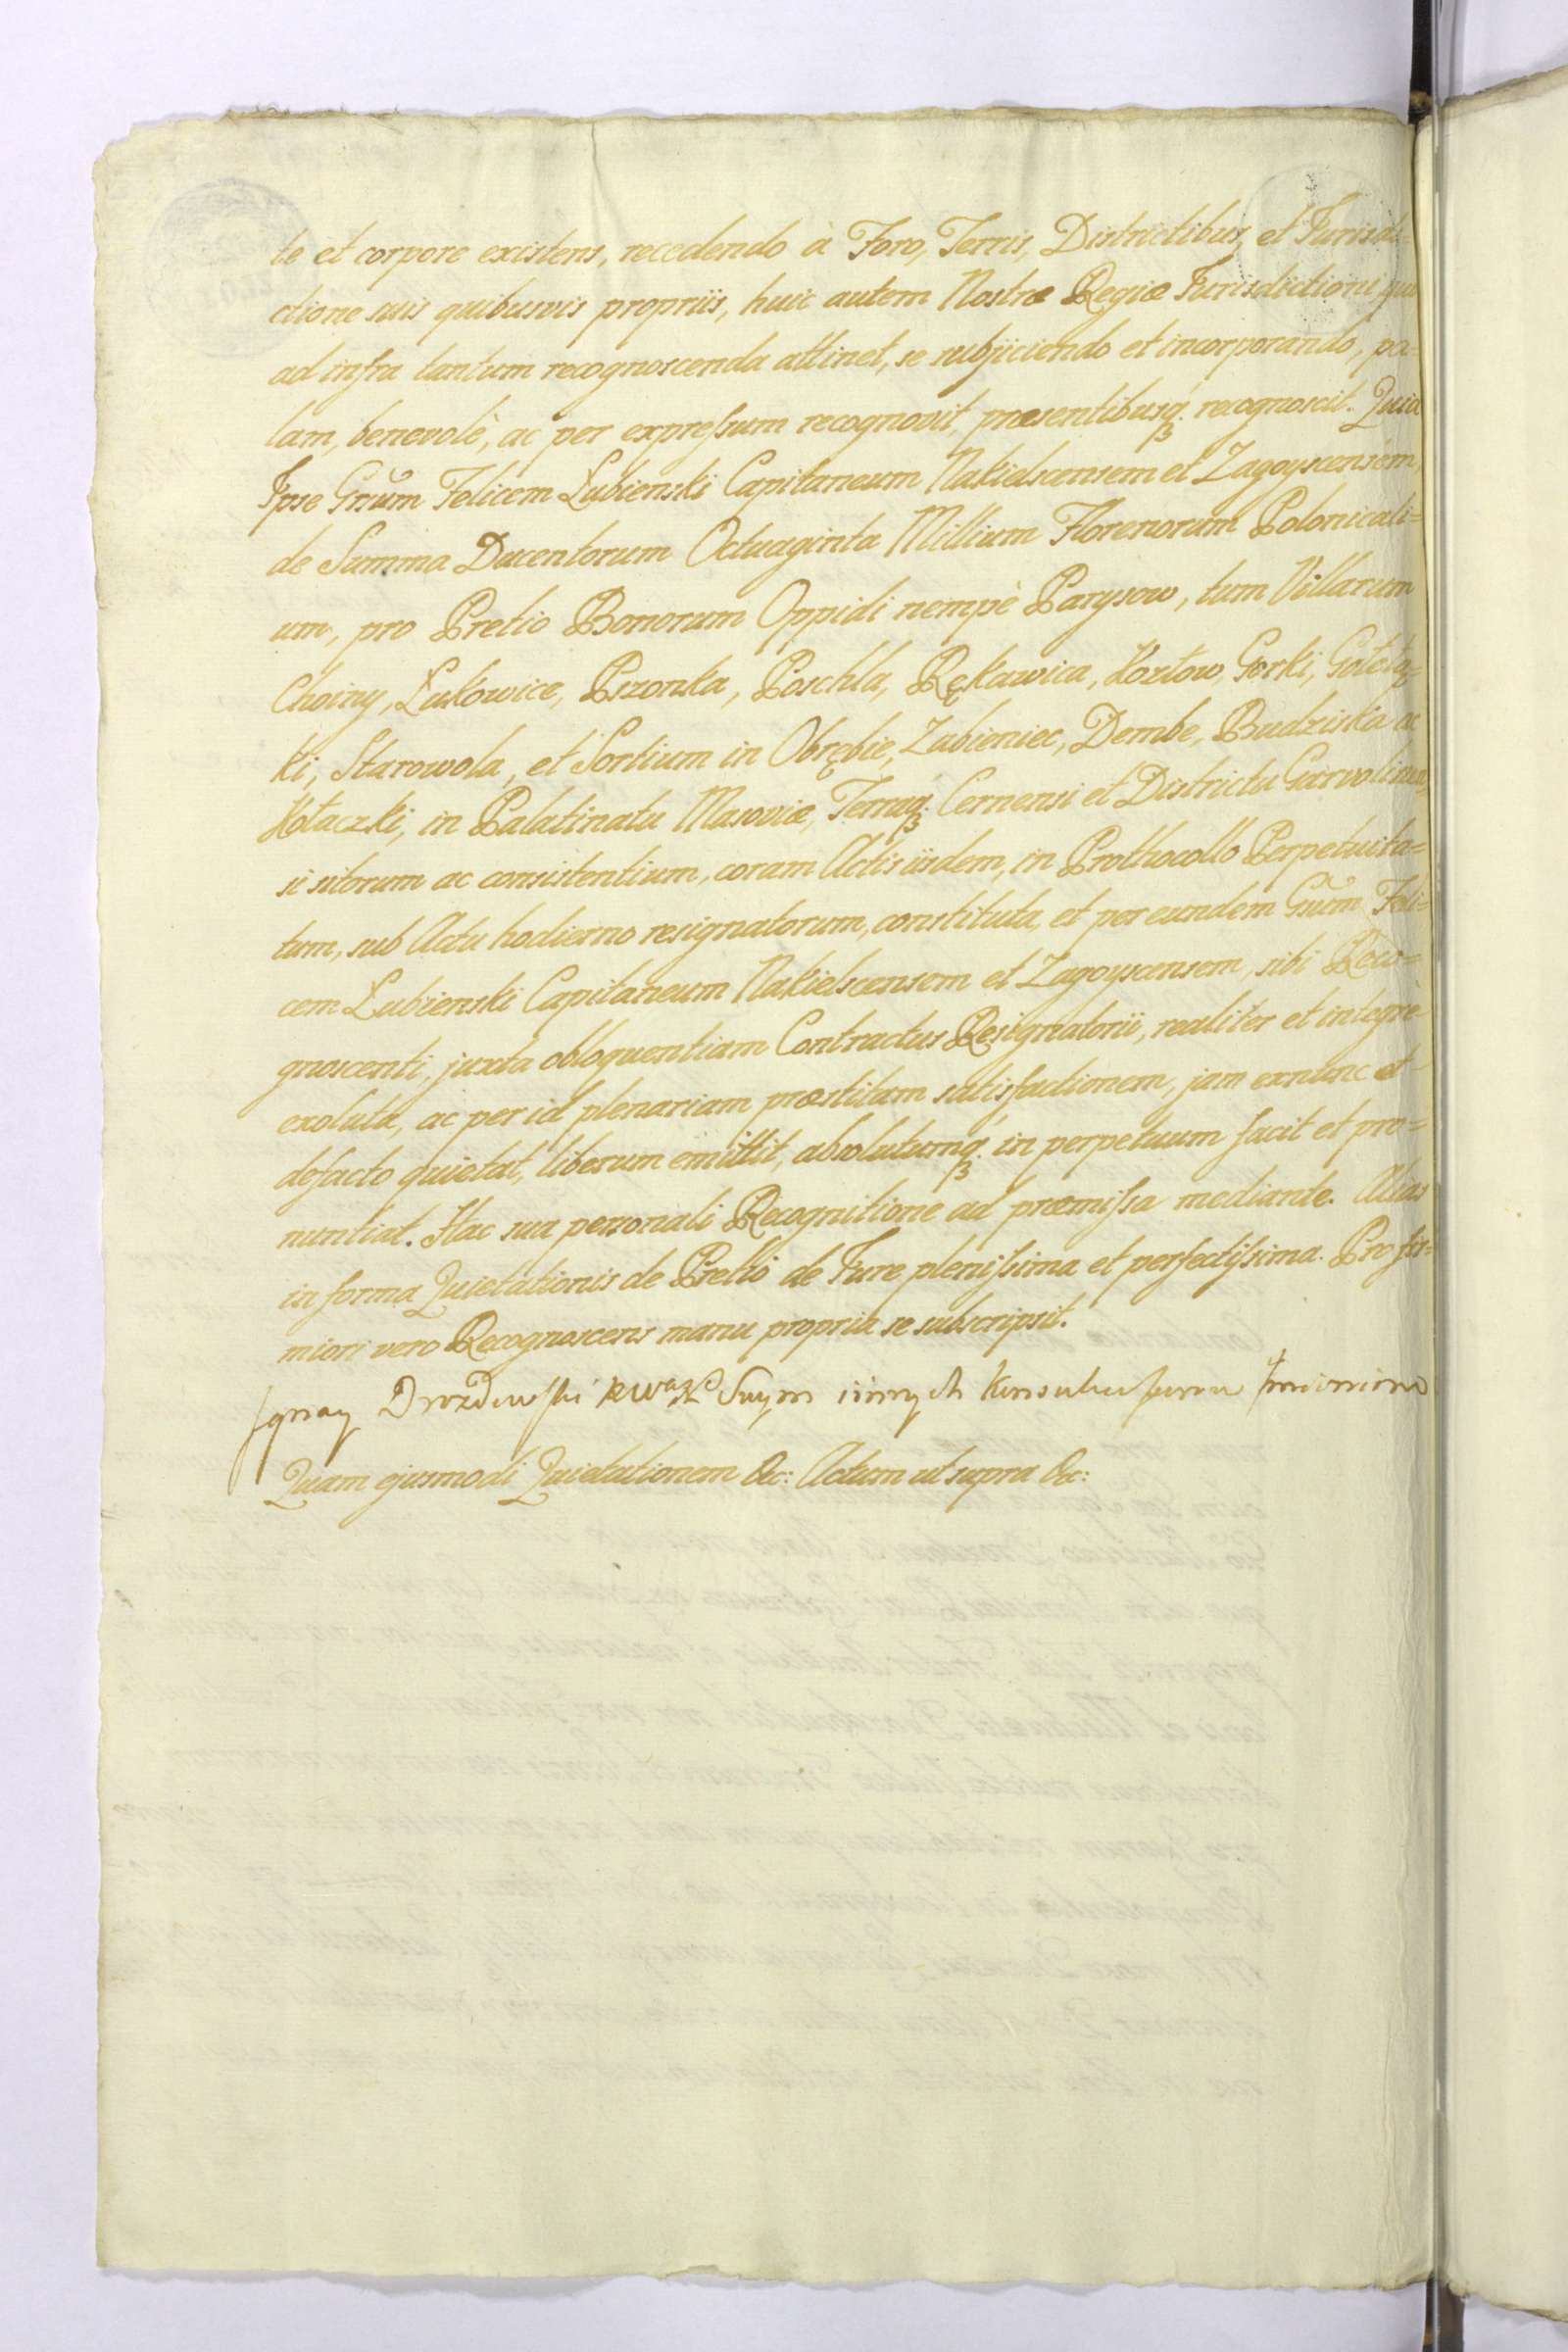 te et corpore existens, recedendo à Foro, Terris, Districtibus, et Jurisdi=
ctione suis quibusvis propriis, huic autem Nostræ Regiæ Jurisdictioni
ad infra tantum recognoscenda attinet, se subjiciendo et incorporando, pa=
lam, benevolè, ac per expreſsum recognovit, præsentibusq́ꝫ recognoscit. Quia
Ipse Gnũm Felicem Łubienski Capitaneum Nakielscensem et Zagoyscensem,
de Summa Ducentorum Octuaginta Millium Florenorum Polonicali=
um, pro Pretio Bonorum Oppidi nempè Parysow, tum Villarum
Choiny, Łukowice, Pszonka, Poschla, Rękawica, Kozłow, Gorki,
ki, Starowola, et Sortium in Obrębie, Zabieniec, Dembe, Budziska ac
Kołaczki, in Palatinatu Masoviæ, Terraq́ꝫ Cernensi et Districtu Garvolinen=
si sitorum ac consistentium, coram Actis iisdem, in Prothocollo Perpetuita=
tum, sub Actu hodierno resignatorum, constituta, et per eundem Gnũm Feli=
cem Łubienski Capitaneum Nakielscensem et Zagoyscensem, sibi Reco=
gnoscenti, juxta obloquentiam Contractus Resignatorii, realiter et integrè
exoluta, ac per id plenariam præstitam satisfactionem, jam exnunc et
defacto quietat, liberum emittit, absolutumq́ꝫ in perpetuum facit et pro=
nuntiat. Hac sua personali Recognitione ad præmiſsa mediante. Alias
in forma Quietationis de Pretio de Jure pleniſsima et perfectiſsima. Pro fir=
miori vero Recognoscens manu propria se subscripsit.
Drozdewski
Quam ejusmodi Quietationem &c: Actum ut supra &c: